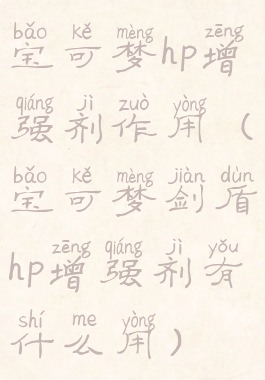 bǎo kě mèng zēng
宝可梦hp增
qiáng jì zuò yòng
强剂作用（
bǎo kě mèng jiàn dùn
宝可梦剑盾
zēng qiáng jì yǒu
hp增强剂有
shí me yòng
什么用）